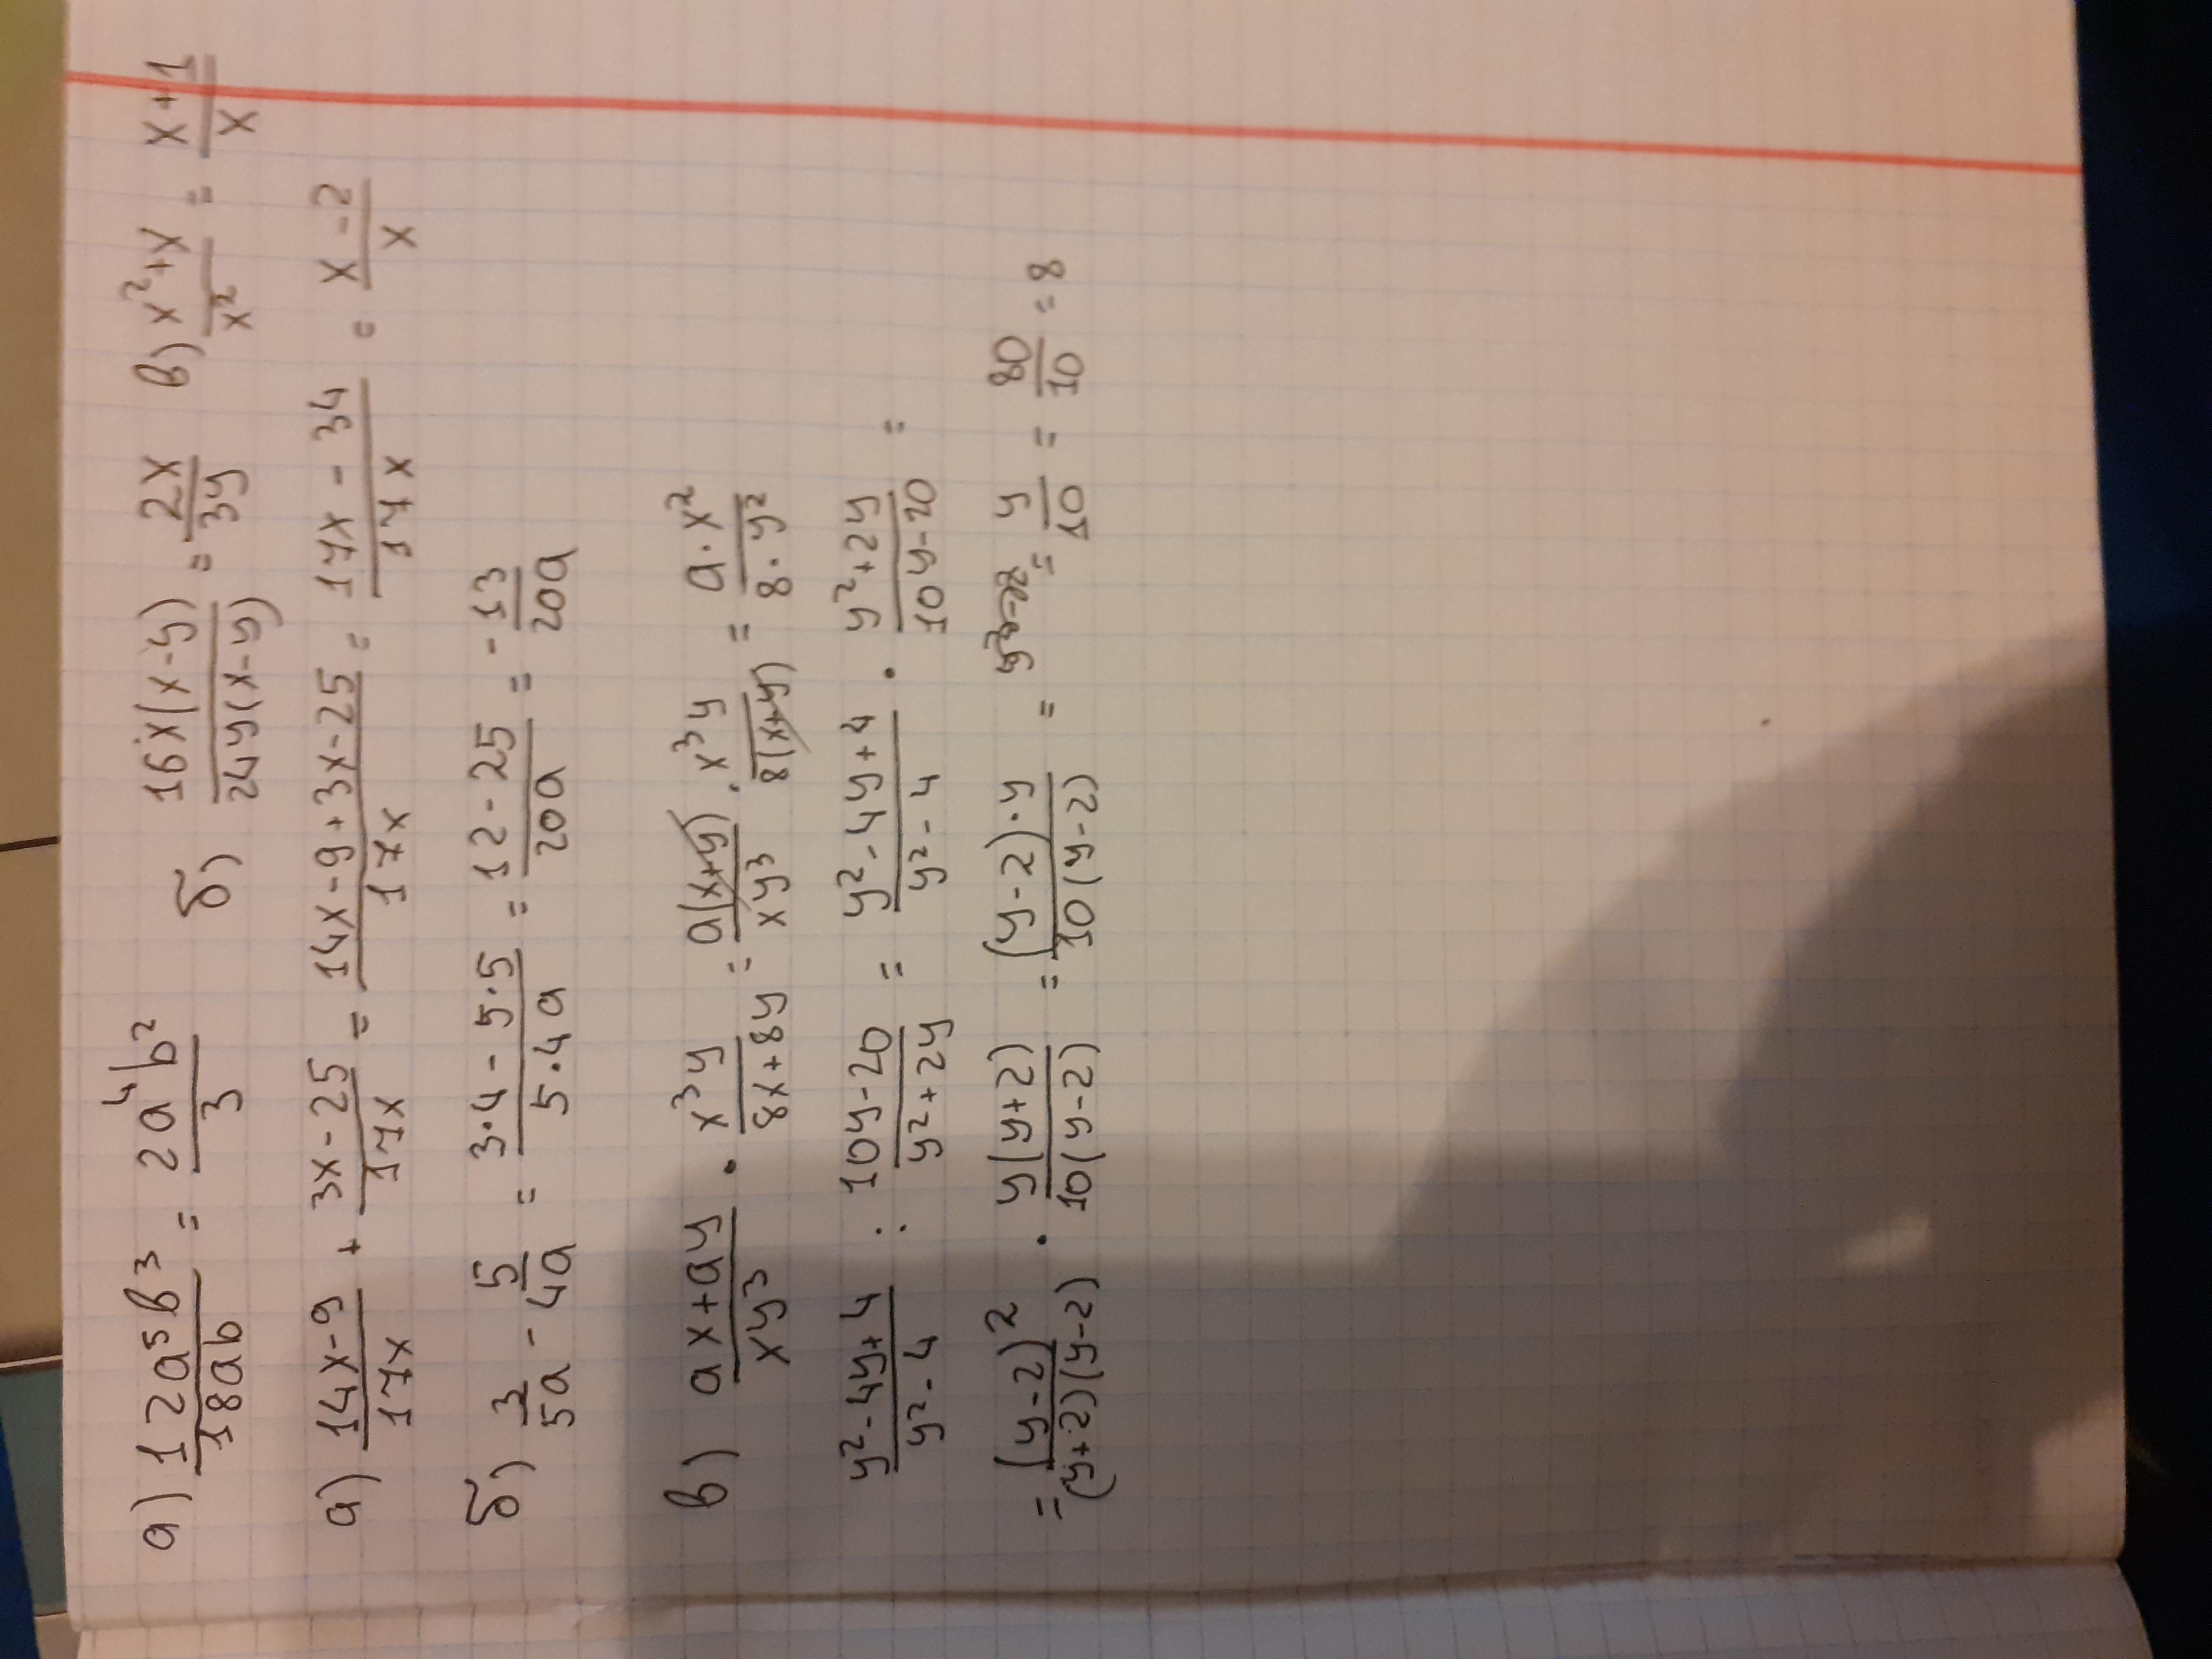 а) 12a⁵b³/18ab = 2a⁴b²/3 б) 16x(x-y)/24y(x-y) = 2x/3y в) x²+x/x² = x+1/x
а) 14x-9/17x + 3x-25/17x = 14x-9+3x-25/17x = 17x-34/17x = x-2/x
б) 3/5a - 5/4a = 3·4-5·5/5·4a = 12-25/20a = -13/20a
в) ax+ay/xy³ · x³y/8x+8y = a(x+y)/xy³ · x³y/8(x+y) = a·x²/8·y²
y²-4y+4/y²-4 : 10y-20/y²+2y = y²-4y+4/y²-4 · y²+2y/10y-20 =
= (y-2)²/(y+2)(y-2) · y(y+2)/10(y-2) = (y-2)·y/10(y-2) = = y/10 = 80/10 = 8